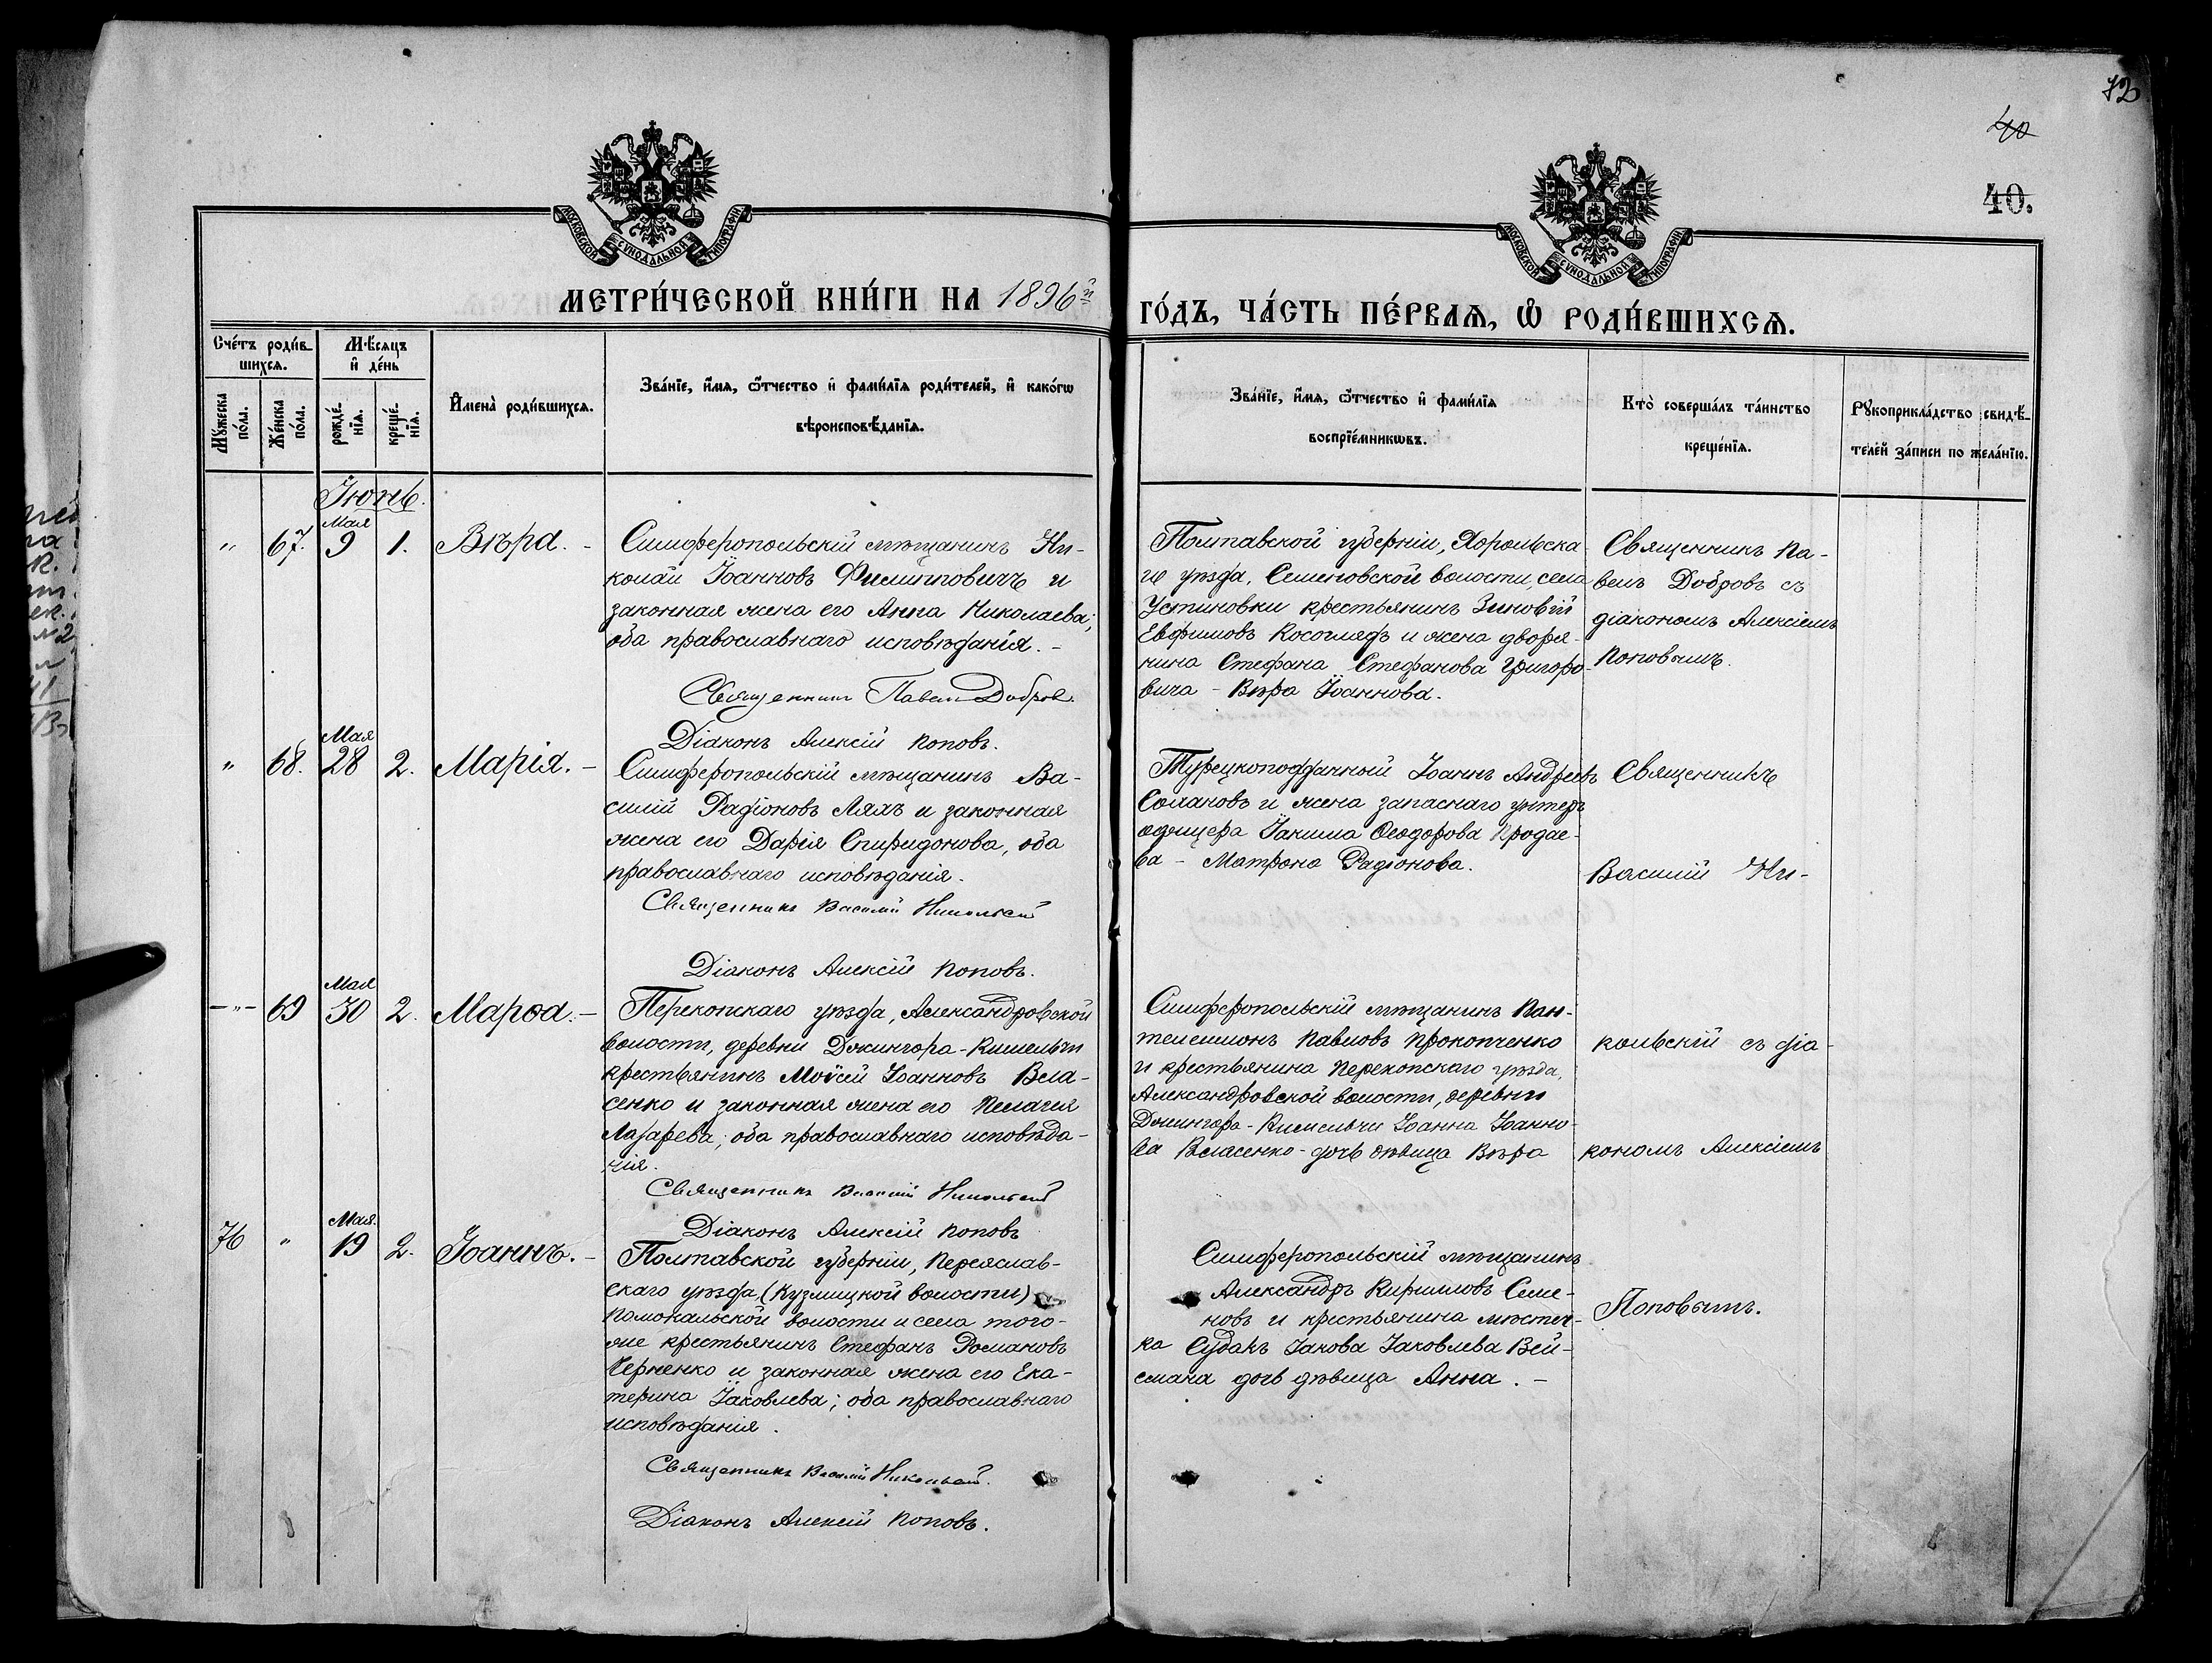 12
40
40.
МОСКОВСКОЙ СѴНОДАЛЬНОЙ ТИПОГРАФІИ
МОСКОВСКОЙ СѴНОДАЛЬНОЙ ТИПОГРАФІИ
МЕТРИ́ЧЕСКОЙ КНИ́ГИ НА 1896й
ГО́ДЪ, ЧА́СТЬ ПЕ́РВАѦ, Ѽ РОДИ́ВШИХСѦ.
Сче́тъ роди́в-
шихсѧ.
Мѣ́сѧцъ
и҆ де́нь
Мꙋ́жеска
по́ла.
Же́нска
по́ла.
рожде́-
нїѧ.
креще́-
нїѧ.
И҆мена̀ роди́вшихсѧ.
Зва́нїе, и҆́мѧ, ѻ҆́тчество и҆ фами́лїѧ роди́телей, и҆ како́гѡ
вѣроисповѣ́данїѧ.
Зва́нїе, и҆́мѧ, ѻ҆́тчество и҆ фами́лїѧ
воспрїе́мникѡвъ.
Кто̀ соверша́лъ та́инство
креще́нїѧ.
Рꙋкоприкла́дство свидѣ́-
телей за́писи по жела́нїю.
Іюнь.
Мая
" 67. 9 1. Вѣра. -
Симферопольскій мѣщанинъ Ни-
колай Іоанновъ Филипповичъ и
законная жена его Анна Николаева;
оба православнаго исповѣданія. -
Священникъ Павелъ Добровъ.
Діаконъ Алексій Поповъ.
Полтавской губерніи, Хорольска
го уѣзда, Семеновской волости, села
Устиновки крестьянинъ Зиновій
Евфимовъ Косоглядъ и жена дворя-
нина Стефана Стефанова Григоро-
вича - Вѣра Іоаннова.
Священникъ Па-
велъ Добровъ съ
діакономъ Алексіемъ
Поповымъ.
Мая
" 68. 28 2. Марія. -
Симферопольскій мѣщанинъ Ва-
силій Радіоновъ Ляхъ и законная
жена его Дарія Спиридонова, оба
православнаго исповѣданія.
Священникъ Василій Никольскій
Діаконъ Алексій Поповъ.
Турецкоподданный Іоаннъ Андреевъ
Солаковъ и жена запаснаго унтеръ
офицера Іакима Ѳеодорова Продае-
ва - Матрона Радіонова.
Священникъ
Василій Ни-
Мая
-"- 69 30 2. Марѳа. -
Перекопскаго уѣзда, Александровской
волости, деревни Джингора-Кишельчи
крестьянинъ Моѵсей Іоанновъ Вла-
сенко и законная жена его Пелагія
Лазарева; оба православнаго исповѣда-
нія.
Священникъ Василій Никольскій
Діаконъ Алексій Поповъ
Симферопольскій мѣщанинъ Пан-
телеимонъ Павловъ Прокопченко
и крестьянина Перекопскаго уѣзда,
Александровской волости, деревни
Джингора-Кишельчи Іоанна Іоанно-
ва Власенко - дочь дѣвица Вѣра
кольскій съ діа-
кономъ Алексіемъ
Мая.
76 " 19 2. Іоаннъ. -
Полтавской губерніи, Переяслав-
скаго уѣзда, (Кузмицкой волости)
Помокальской волости и села того-
же крестьянинъ Стефанъ Романовъ
Черненко и законная жена его Ека-
терина Іаковлева; оба православнаго
исповѣданія.
Священникъ Василій Никольскій.
Діаконъ Алексій Поповъ.
Симферопольскій мѣщанинъ
Александръ Кирилловъ Семе-
новъ и крестьянина мѣстеч-
ка Судакъ Іакова Іаковлева Вей-
смана дочь дѣвица Анна. -
Поповымъ.